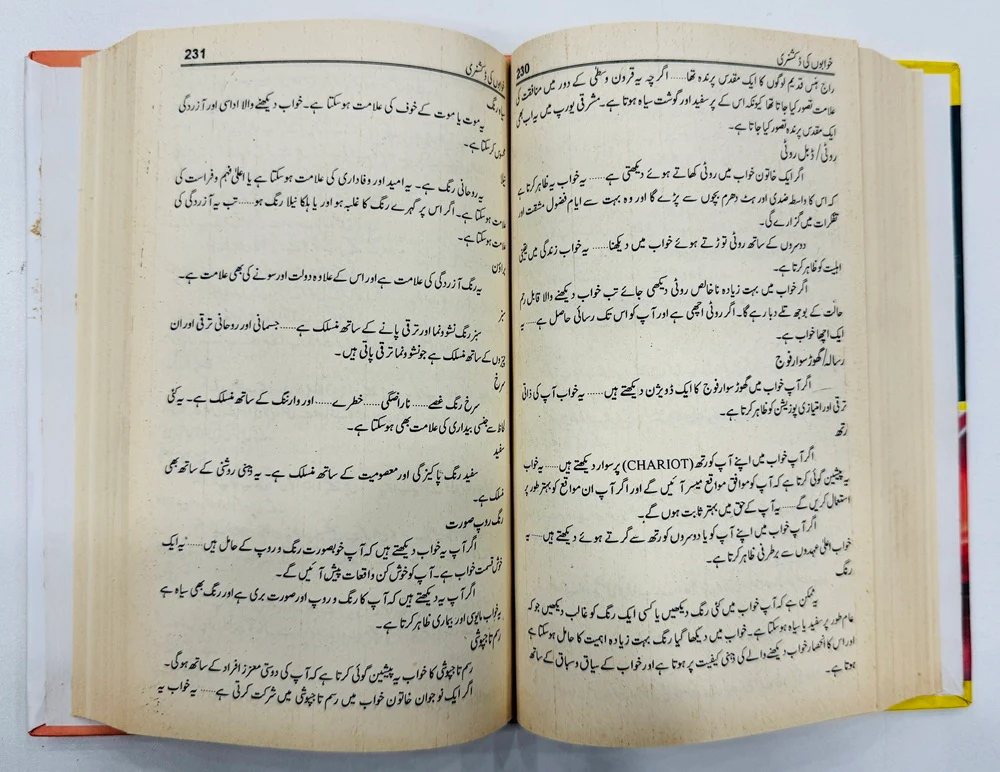 خوابوں کی ڈکشنری
230
راج ہنس قدیم لوگوں کا ایک مقدس پرندہ تھا...... اگرچہ یہ قرون وسطیٰ کے دور میں منافقت کی
علامت تصور کیا جاتا تھا کیونکہ اس کے پر سفید اور گوشت سیاہ ہوتا ہے۔ مشرقی یورپ میں یہ اب بھی
ایک مقدس پرندہ تصور کیا جاتا ہے۔
روٹی/ڈبل روٹی
اگر ایک خاتون خواب میں روٹی کھاتے ہوئے دیکھتی ہے...... یہ خواب یہ ظاہر کرتا ہے
کہ اس کا واسطہ ضدی اور ہٹ دھرم بچوں سے پڑے گا اور وہ بہت سے ایام فضول مشقت اور
تفکرات میں گزارے گی۔
دوسروں کے ساتھ روٹی توڑتے ہوئے خواب میں دیکھنا...... یہ خواب زندگی میں یقینی
اہلیت کو ظاہر کرتا ہے۔
اگر خواب میں بہت زیادہ ناخالص روٹی دیکھی جائے تب خواب دیکھنے والا قابل رحم
حالت کے بوجھ تلے دبا رہے گا۔ اگر روٹی اچھی ہے اور آپ کو اس تک رسائی حاصل ہے...... یہ
ایک اچھا خواب ہے۔
رسالہ/گھوڑ سوار فوج
اگر آپ خواب میں گھوڑ سوار فوج کا ایک ڈویژن دیکھتے ہیں...... یہ خواب آپ کی ذاتی
ترقی اور امتیازی پوزیشن کو ظاہر کرتا ہے۔
رتھ
اگر آپ خواب میں اپنے آپ کو رتھ (CHARIOT) پر سوار دیکھتے ہیں...... یہ خواب
یہ پیشین گوئی کرتا ہے کہ آپ کو موافق مواقع میسر آئیں گے اور اگر آپ ان مواقع کو بہتر طور پر
استعمال کریں گے...... یہ آپ کے حق میں بہتر ثابت ہوں گے۔
اگر آپ خواب میں اپنے آپ کو یا دوسروں کو رتھ سے گرتے ہوئے دیکھتے ہیں...... یہ
خواب اعلیٰ عہدوں سے برطرفی ظاہر کرتا ہے۔
رنگ
یہ ممکن ہے کہ آپ خواب میں کئی رنگ دیکھیں یا کسی ایک رنگ کو غالب دیکھیں جو کہ
عام طور پر سفید یا سیاہ ہوسکتا ہے۔ خواب میں دیکھا گیا رنگ بہت زیادہ اہمیت کا حامل ہوسکتا ہے
اور اس کا انحصار خواب دیکھنے والے کی ذہنی کیفیت پر ہوتا ہے اور خواب کے سیاق و سباق کے ساتھ
ہوتا ہے۔
خوابوں کی ڈکشنری
231
رنگ
یہ موت یا موت کے خوف کی علامت ہوسکتا ہے۔ خواب دیکھنے والا اداسی اور آزردگی
محسوس کرسکتا ہے۔
نیلا
یہ روحانی رنگ ہے۔ یہ امید اور وفاداری کی علامت ہوسکتا ہے یا اعلیٰ فہم و فراست کی
علامت ہوسکتا ہے۔ اگر اس پر گہرے رنگ کا غلبہ ہو اور یا ہلکا نیلا رنگ ہو...... تب یہ آزردگی کی
علامت ہوسکتا ہے۔
براؤن
یہ رنگ آزردگی کی علامت ہے اور اس کے علاوہ دولت اور سونے کی بھی علامت ہے۔
سبز
سبز رنگ نشوونما اور ترقی پانے کے ساتھ منسلک ہے...... جسمانی اور روحانی ترقی اور ان
چیزوں کے ساتھ منسلک ہے جو نشوونما ترقی پاتی ہیں۔
سرخ
سرخ رنگ غصے...... ناراضگی...... خطرے...... اور وارننگ کے ساتھ منسلک ہے۔ یہ کئی
لحاظ سے جنسی بیداری کی علامت بھی ہوسکتا ہے۔
سفید
سفید رنگ پاکیزگی اور معصومیت کے ساتھ منسلک ہے۔ یہ دینی روشنی کے ساتھ بھی
منسلک ہے۔
رنگ روپ صورت
اگر آپ یہ خواب دیکھتے ہیں کہ آپ خوبصورت رنگ و روپ کے حامل ہیں...... یہ ایک
خوش قسمت خواب ہے۔ آپ کو خوش کن واقعات پیش آئیں گے۔
اگر آپ یہ دیکھتے ہیں کہ آپ کا رنگ و روپ اور صورت بری ہے اور رنگ بھی سیاہ ہے
یہ خواب مایوسی اور بیماری ظاہر کرتا ہے۔
رسم تاجپوشی
رسم تاجپوشی کا خواب یہ پیشین گوئی کرتا ہے کہ آپ کی دوستی معزز افراد کے ساتھ ہوگی۔
اگر ایک نوجوان خاتون خواب میں رسم تاجپوشی میں شرکت کرتی ہے...... یہ خواب یہ